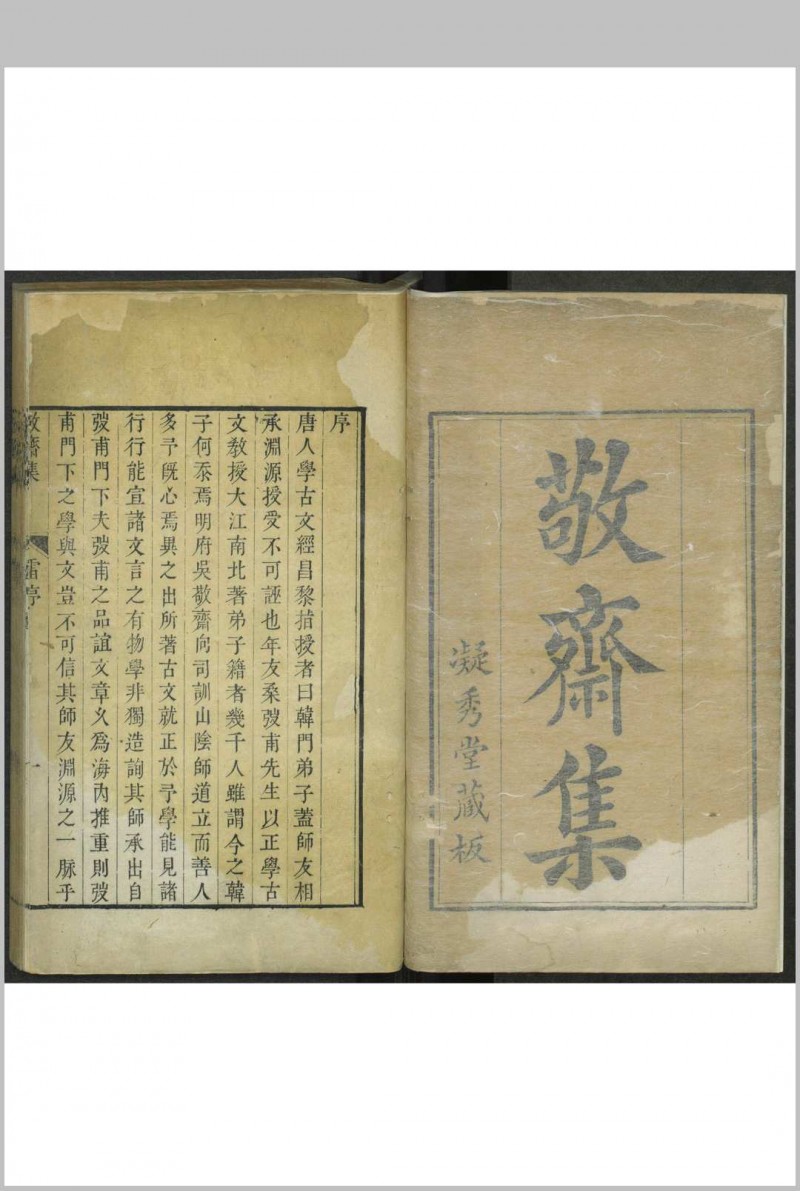 敬齋集
凝秀堂藏板
序
唐人學古文經昌黎指授者曰韓門弟子蓋師友相
承淵源授受不可誣也年友桑弢甫先生以正學古
文敎授大江南北著弟子籍者幾千人雖謂今之韓
子何忝焉明府吳敬齋向司訓山陰師道立而善人
多予旣心焉異之出所著古文就正於予學能見諸
行行能宣諸文言之有物學非獨造詢其師承出自
弢甫門下夫弢甫之品誼文章久爲海內推重則弢
甫門下之學與文豈不可信其師友淵源之一脉乎
敬齋集
雷序
一